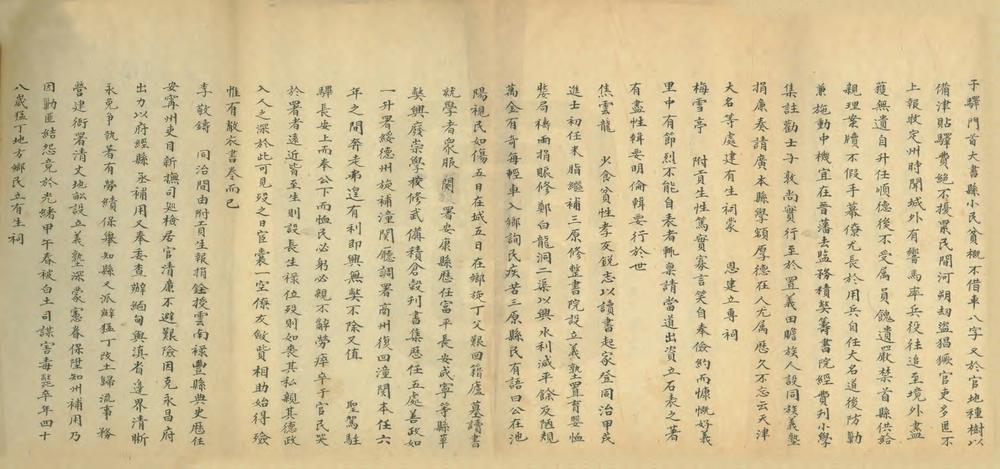 子驛門首大書縣小民貧概不借車八字又於官地種樹以
備津貼驛費絕不擾累民間河朔刼盜猖獗官吏多匿不
上報牧定州時聞城外有響馬率兵役往追至境外盡
獲無遺自升任順德後不受屬員餽遺嚴禁首縣供給
親理案牘不假手幕僚尤長於用兵自任大名道後防勦
兼施動中機宜在晉藩去監務積獘籌書院經費刊小學
集註勸士子敦尚實行至於置義田贍族人設同族義塾
捐廉奏請廣本縣學額厚德在人尤屬歷久不忘云天津
大名等處建有生祠蒙恩建立專祠
梅雪亭附貢生性篤實寡言笑自奉儉約而慷慨好義
里中有節烈不能自表者輒稟請當道出資立石表之著
有盡性輯要明倫輯要行於世
焦雲龍火食貧性孝友銳志以讀書起家登同治甲戌
進士初任米脂繼補三原修整書院設立義塾置育嬰恤
嫠局禱雨捐賑修鄭白龍洞二渠以興水利減平餘及陋規
萬金有奇每輕車入鄉詢民疾苦三原縣民有語曰公在池
陽視民如傷五日在城五日在鄉旋丁父艱回籍廬墓讀書
就學者衆服闋署安康縣歷任富平長安咸寧等縣革
獘興廢崇學校修武備積倉穀刊書集歷任五處善政如
一升署綏德州旋補潼關廳調署商州復回潼關本任六
年之間奔走弗遑有利即興無獘不除又值聖駕駐
驛長安上而奉公下而恤民必躬必親不辭勞瘁卒于官民哭
於署者遠近皆至生則設長生祿位歿則如喪其私親其德政
入人之深於此可見歿之日宦囊一空僚友斂貲相助始得殮
惟有敝衣書卷而已
李敬鑄同治間由附貢生報捐銓授雲南祿豐縣典史歷任
安寧州吏目新撫司巡檢居官清廉不避艱險因克永昌府
出力以府經縣丞補用又奉委查辦緬甸與滇省邊界清晰
永免爭執著有勞績保舉知縣又派辦猛丁改土歸流事務
營建衙署清丈地畝設立義塾深蒙憲眷保陞知州補用乃
因勦匪結怨竟於光緒甲午春被白土司謀害毒斃卒年四十
八歲猛丁地方鄉民立有生祠